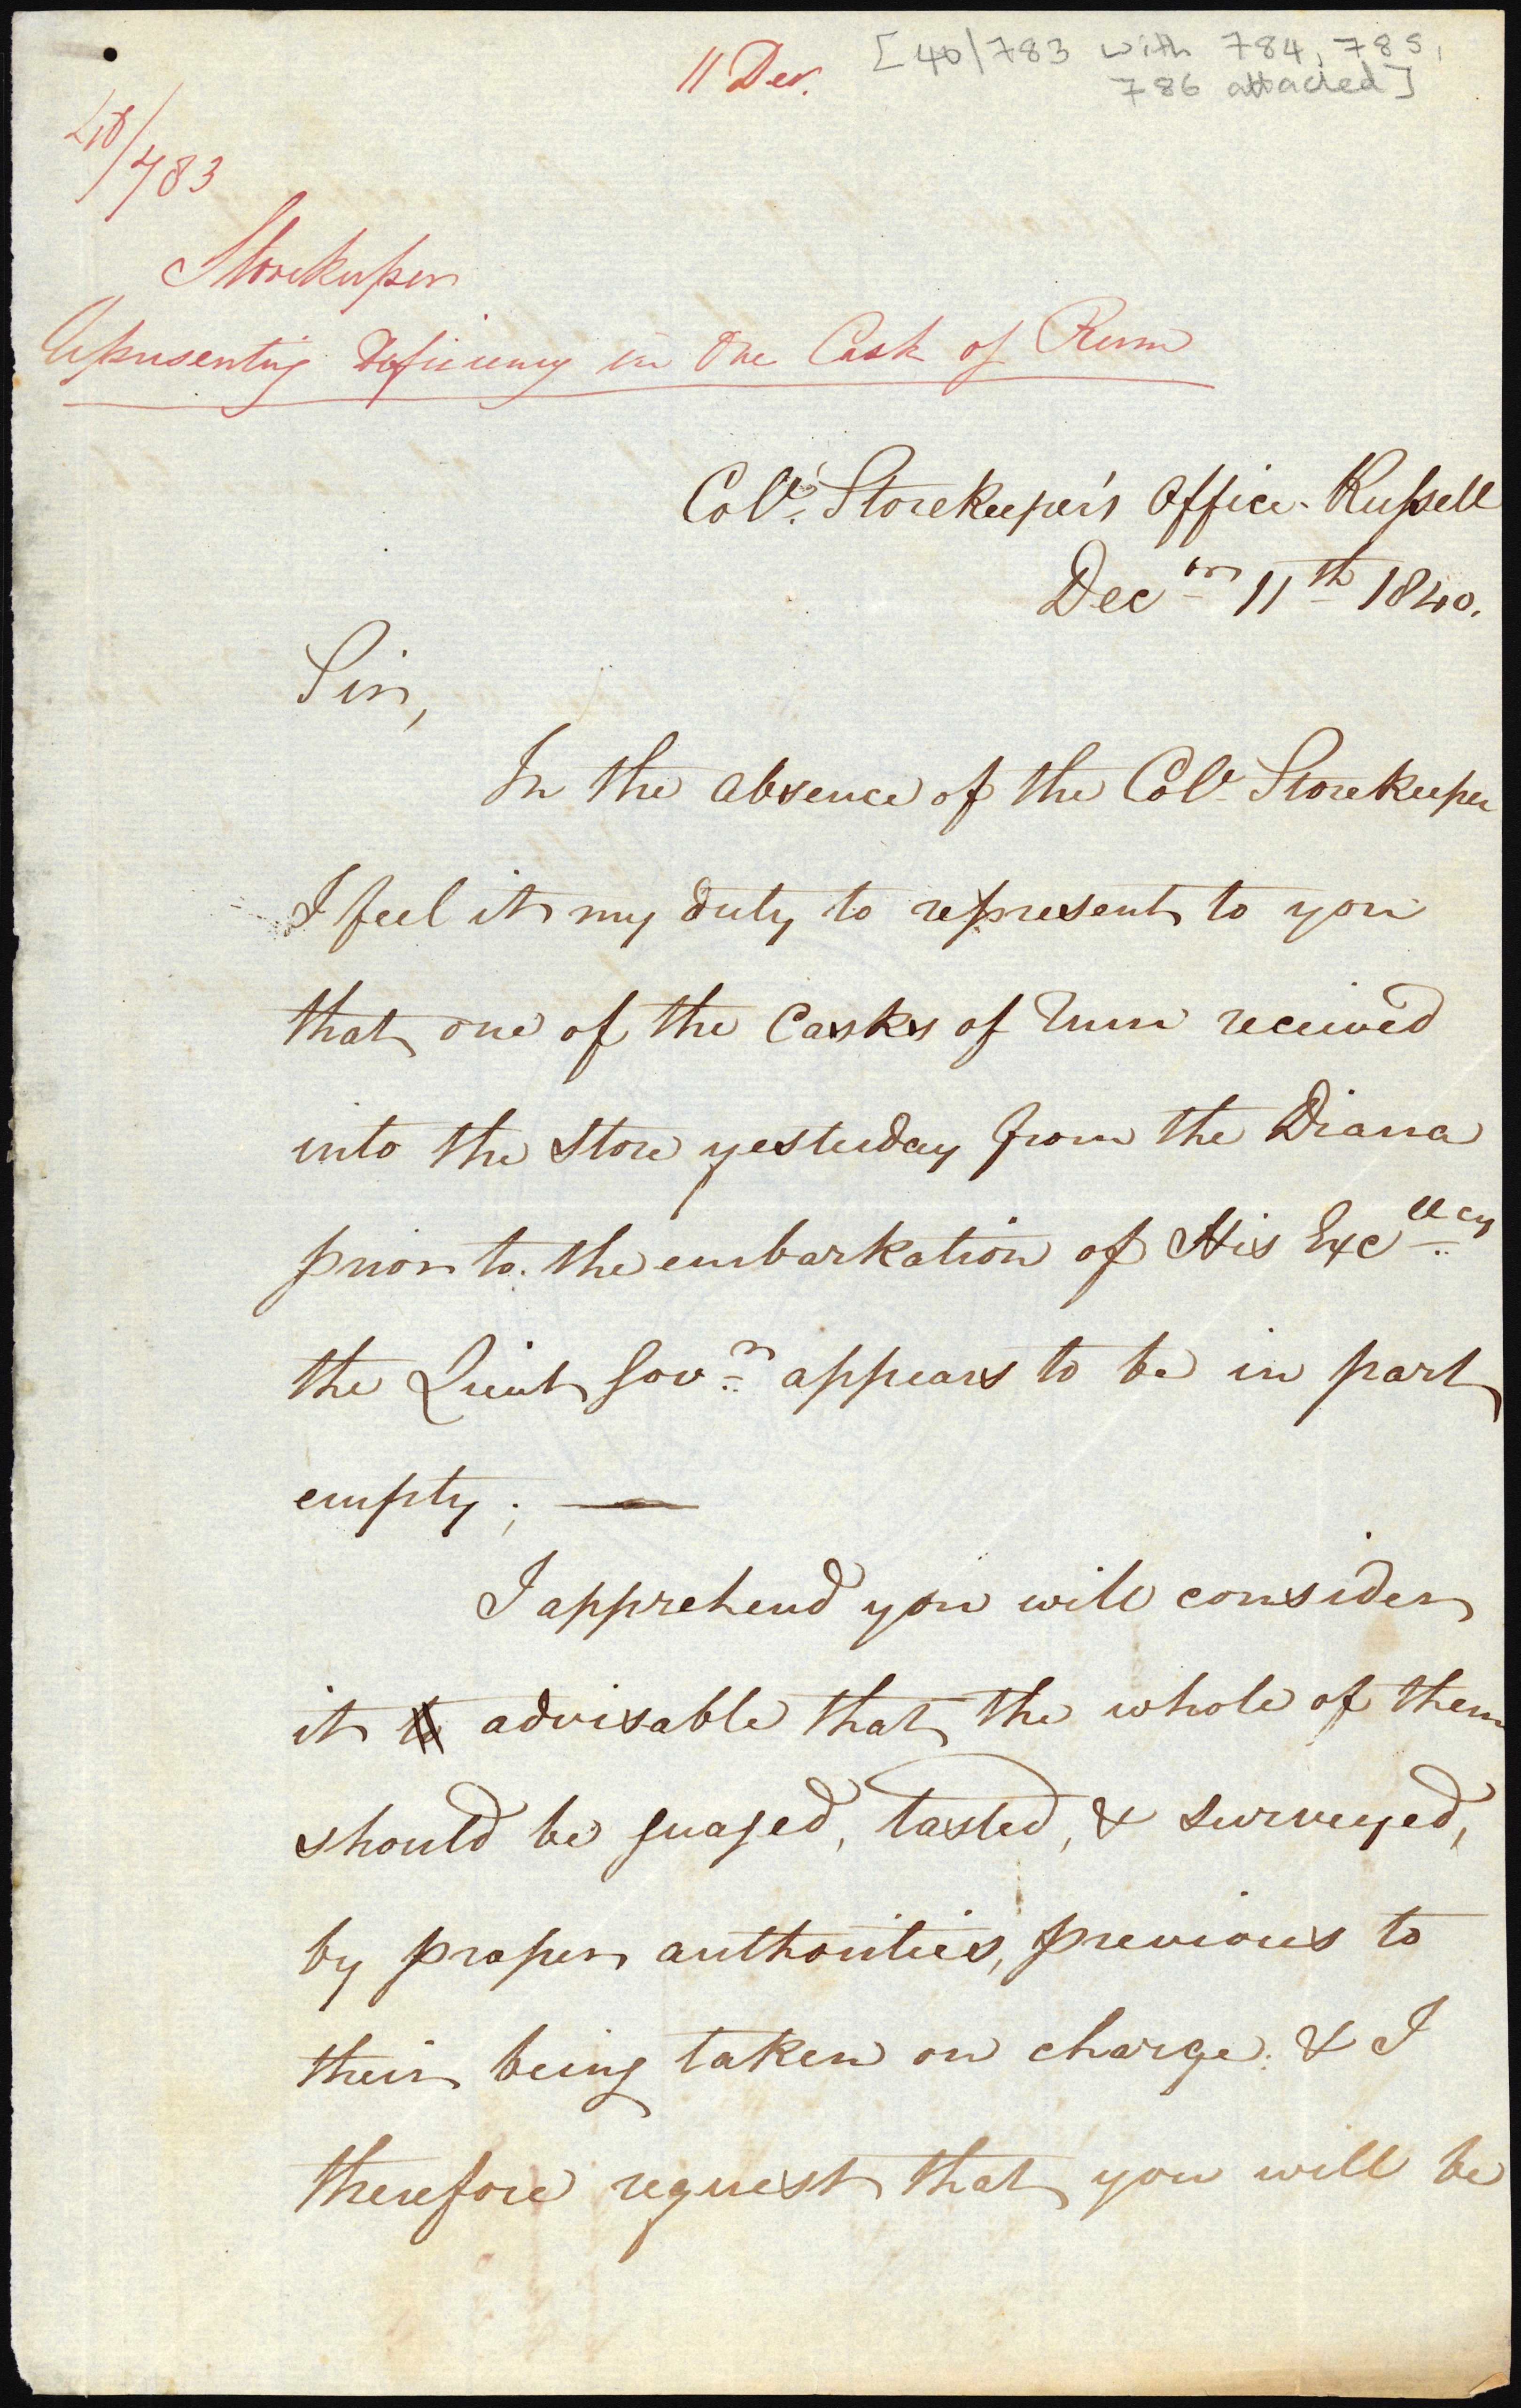 11 Decr.
[40/783 with 784, 785,
786 attached]
40/783
Storekeeper
Representing Deficiency in One Cask of Rum
Coll. Storekeeper's Office. Russell
Decr 11th 1840.
Sir,
In the absence of the Coll Storekeeper
I feel it my duty to represent to you
that one of the Casks of Rum received
into the Store yesterday from the Diana
prior to the embarkation of His Excellcy
the Lieut Govr appears to be in part
empty; —
I apprehend you will consider
it advisable that the whole of them
should be guaged, tasted, & surveyed,
by proper authorities, previous to
their being taken on charge: & I
therefore request that you will be